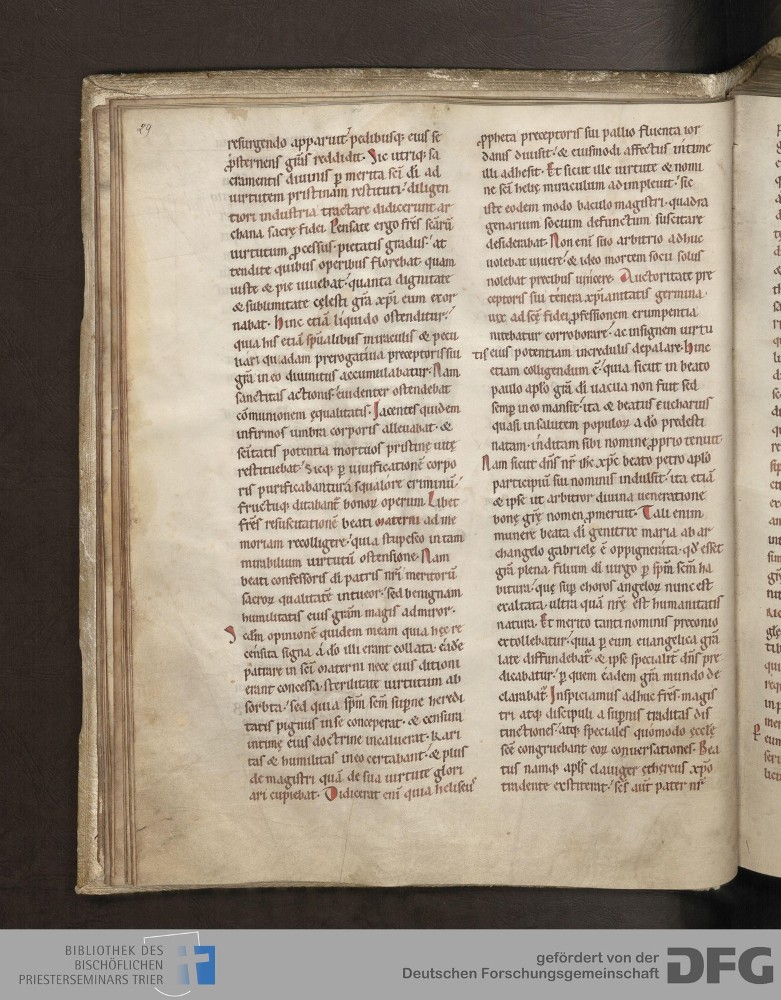 29
resurgendo apparuit᛫ pedibusq; eius se
ꝓsternens grās reddidit. Sic utriq; sa
cramentis diuinis ꝑ merita scī dī ad
uirtutem pristinam restituti᛫ diligen
tiori industria tractare didicerunt ar
chana sacrę fidei. Pensate ergo frēs
uirtutum ꝓcessus᛫ pietatis gradus᛫ at
tendite quibus operibus florebat᛫ quam
iuste & pie uiuebat᛫ quanta dignitate
& sublimitate cęlesti grā xp̄i eum exor
nabat. Hinc etiā liquido ostenditur᛫
quia his etiā spūalibus miraculis & pecu
liari quadam prerogatiua preceptoris sui
grā in eo diuinitus accumulabatur. Nam
sanctitas actionis᛫ euidenter ostendebat
cōmunionem ęqualitatis. Jacentes quidem
infirmos umbra corporis alleuabat᛫ &
scītatis potentia mortuos pristinę uitę
restituebat᛫ Sicq; ꝑ uiuificationē corpo
ris purificabantur a squalore criminū᛫
fructuq; ditabant᷑ bonoꝝ operum. Libet
frēs resuscitationē beati materni ad me
moriam recolligere᛫ quia stupesco in tam
mirabilium uirtutū ostensione. Nam
beati confessoris dī patris nrī meritorū
sacroꝝ qualitatē intueor᛫ sed benignam
humilitatis eius gram̄ magis admiror.
opinionē quidem meam quia hęc re
censita signa a dō illi erant collata᛫ eade
patrare in scī materni nece eius ditioni
erant concessa᛫ sterilitate uirtutum ab
sorbta᛫ sed quia spm̄ scm̄ supnę heredi
tatis pignus in se conceperat᛫ & censura
intimę eius doctrinę incaluerat᛫ kari
tas & humilitas in eo certabant᛫ & plus
de magistri quā de sua uirtute glori
ari cupiebat. Didicerat enī quia heliseus
ꝓpheta preceptoris sui pallio fluenta ior
danis diuisit᛫ & eiusmodi affectus intime
illi adhesit. Et sicut ille uirtute & nomi
ne scī helię miraculum adimpleuit᛫ sic
iste eodem modo baculo magistri᛫ quadra
genarium socium defunctum suscitare
desiderabat. Non enī suo arbitrio adhuc
uolebat uiuere᛫ & ideo mortem socii solus
nolebat precibus uincere. Auctoritate pre
ceptoris sui tenera xp̄ianitatis germina᛫
uix ad scę fidei ꝓfessionem erumpentia
nitebatur corroborare᛫ ac insignem uirtu
tis eius potentiam incredulis depalare. Hinc
etiam colligendum ē᛫ quia sicut in beato
paulo aplō grā dī uacua non fuit sed
semp in eo mansit᛫ ita & beatus Eucharius
quasi in salutem populoꝝ a dō predesti
natam᛫ inditam sibi nomine ꝓprio tenuit
Nam sicut dn̄s nr̄ ihc xp̄c beato petro aplō
participiū sui nominis indulsit᛫ ita etiā
& ipse ut arbitror diuina ueneratione
bonę grę̄ nomen ꝓmeruit. Tali enim
munere beata dī genitrix maria ab ar
changelo gabriele ē oppignerata᛫ qd̄ esset
grā plena᛫ filium dī uirgo ꝑ spm̄ scm̄ ha
bitura᛫ quę sup choros angeloꝝ nunc est
exaltata᛫ ultra quā nrę̄ est humanitatis
natura. Et merito tanti nominis preconio
extollebatur᛫ quia ꝑ eum euangelica grā
late diffundebat᷑᛫ & ipse specialit dn̄s pre
dicabatur᛫ ꝑ quem eadem grā mundo de
clarabat᷑. Inspiciamus adhuc frēs᛫ magis
tri atq; discipuli a supnis traditas dis
tinctiones᛫ atq; speciales quomodo ęcclę
scę̄ congruebant eoꝝ conuersationes. Bea
tus namq; apls̄ clauiger ęthereus xp̄o
tradente exstiterat᛫ scs̄ aut̄ pater nr̄
BIBLIOTHEK DES
BISCHÖFLICHEN
PRIESTERSEMINARS TRIER
gefördert von der
Deutschen Forschungsgemeinschaft
DFG